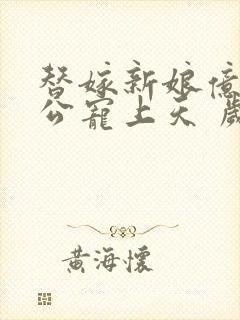 替嫁新娘億
公寵上天 歲
黃海懷